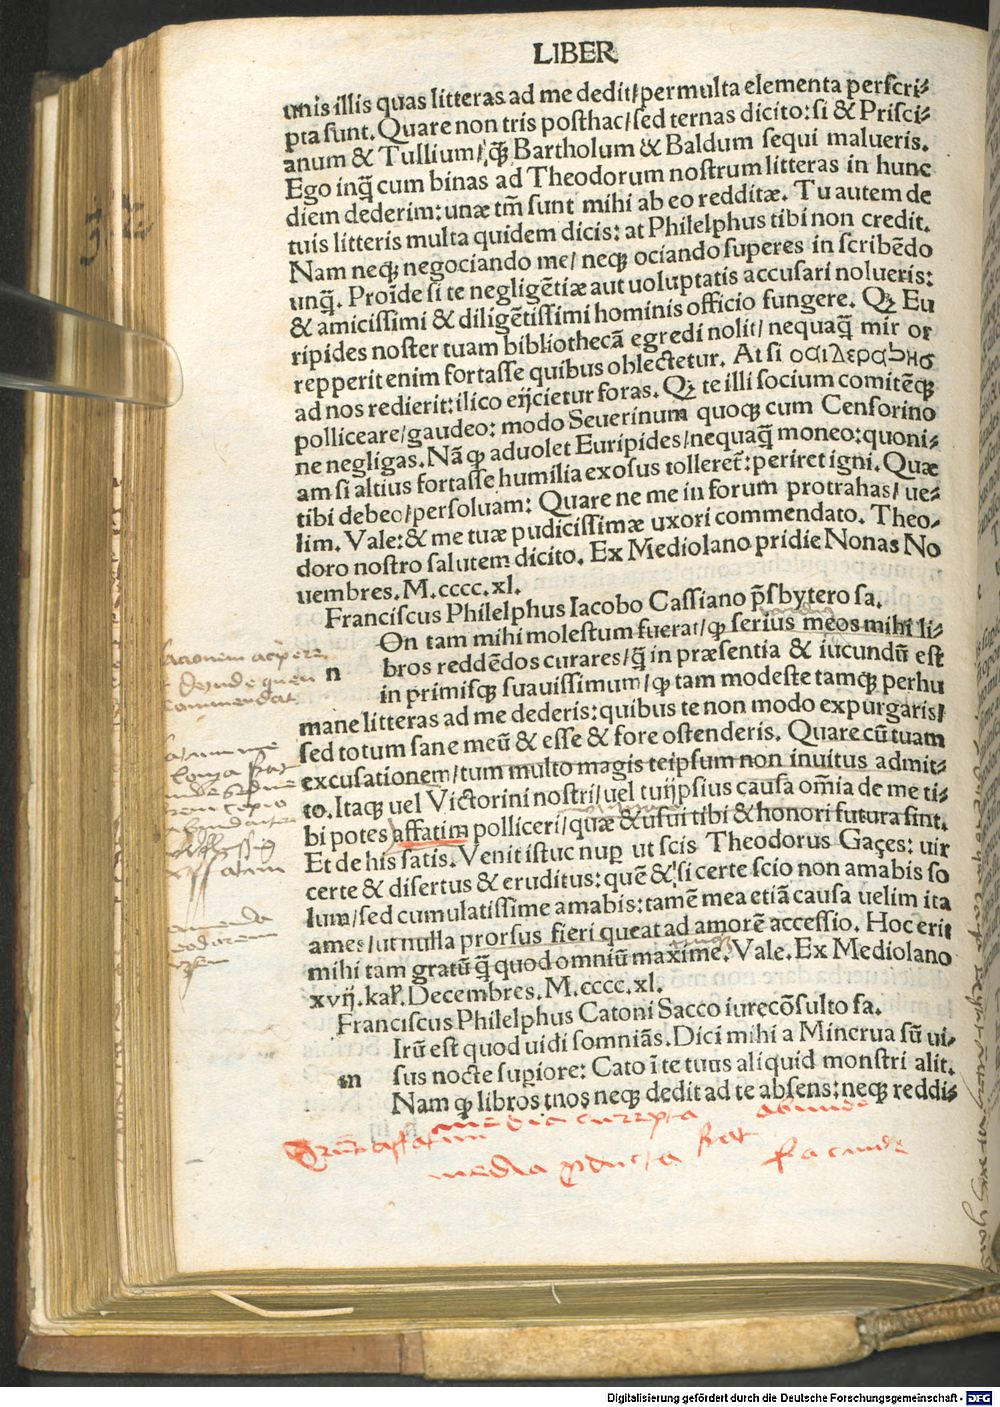 LIBER
unis illis quas litteras ad me dedit/per multa elementa perscri-
pta sunt. Quare non tris posthac/sed ternas dicito: si & Prisci-
anum & Tullium/ꝙ̃ Bartholum & Baldum sequi malueris.
Ego inq̃ cum binas ad Theodorum nostrum litteras in hunc
diem dederim: unæ tm̃ sunt mihi ab eo redditæ. Tu autem de
tuis litteris multa quidem dicis: at Philelphus tibi non credit.
Nam neqꝫ negociando me/ neqꝫ ociando superes in scribẽdo
unq̃. Proĩde si te negligẽtiæ aut uoluptatis accusari nolueris:
& amicissimi & diligẽtissimi hominis officio fungere. Qꝫ Eu
ripides noster tuam bibliothecã egredi nolit/ nequaq̃ mir or
repperit enim fortasse quibus oblectetur. At si
ad nos redierit: ilico eijcietur foras. Qꝫ te illi socium comitẽqꝫ
polliceare/gaudeo: modo Seuerinum quoqꝫ cum Censorino
ne negligas. Nã ꝙ aduolet Euripides/nequaq̃ moneo: quoni-
am si altius fortasse humilia exosus tolleret̃: periret igni. Quæ
tibi debeo/persoluam: Quare ne me in forum protrahas/ ue-
lim. Vale: & me tuæ pudicissimæ uxori commendato. Theo-
doro nostro salutem dicito. Ex Mediolano pridie Nonas No
uembres. M.cccc.xl.
Franciscus Philelphus Iacobo Cassiano p̃sbytero sa.
On tam mihi molestum fuerat/ꝙ serius meos mihi li-
n bros reddẽdos curares/q̃ in præsentia & iucundũ est
in primisqꝫ suauissimum/ꝙ tam modeste tamqꝫ perhu
mane litteras ad me dederis: quibus te non modo expurgaris/
sed totum sane meũ & esse & fore ostenderis. Quare cũ tuam
excusationem/tum multo magis teipsum non inuitus admit-
to. Itaqꝫ uel Victorini nostri/uel tuijpsius causa om̃ia de me ti-
bi potes affatim polliceri/quæ & usui tibi & honori futura sint.
Et de his satis. Venit istuc nuꝑ ut scis Theodorus Gaçes: uir
certe & disertus & eruditus: quẽ & si certe scio non amabis so
lum/sed cumulatissime amabis: tamẽ mea etiã causa uelim ita
ames/ut nulla prorsus fieri queat ad amorẽ accessio. Hoc erit
mihi tam gratũ q̃ quod omniũ maxime. Vale. Ex Mediolano
xvij. kal. Decembres. M.cccc.xl.
Franciscus Philelphus Catoni Sacco iurecõsulto sa.
Irũ est quod uidi somniãs. Dici mihi a Minerua sũ ui-
m sus nocte suꝑiore: Cato ĩ te tuus aliquid monstri alit.
Nam ꝙ libros tuos neqꝫ dedit ad te absens: neqꝫ reddi-
affatim media correpta
media producta
Digitalisierung gefördert durch die Deutsche Forschungsgemeinschaft - DFG